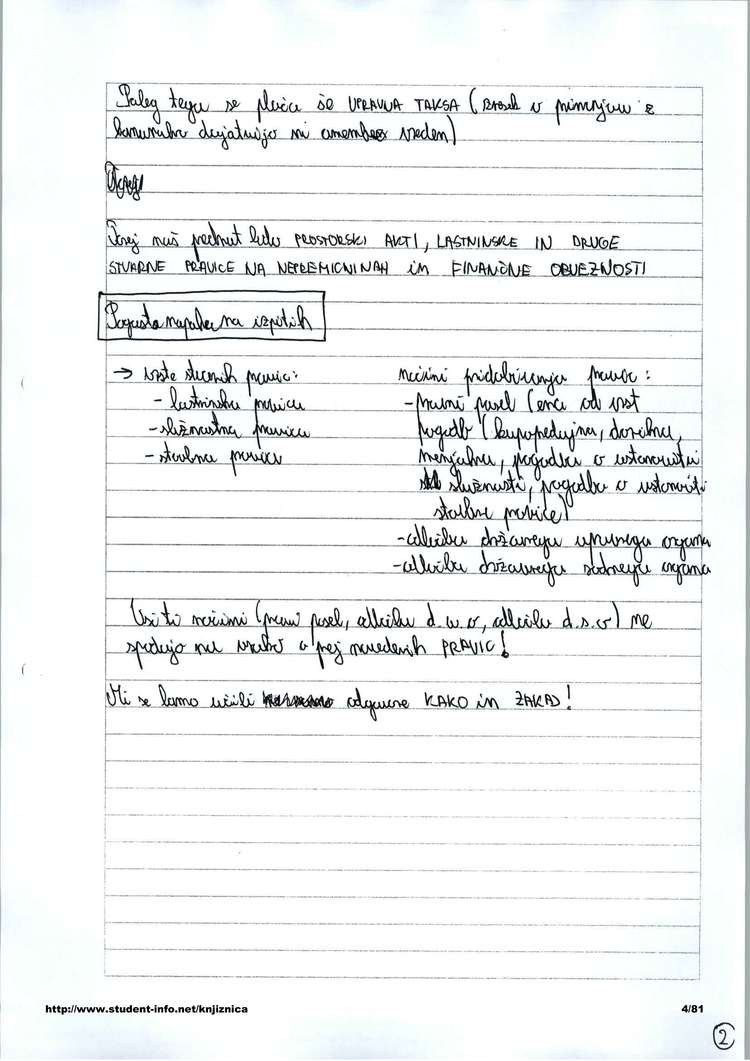 Poleg tega se plača še UPRAVNA TAKSA (znesek v primerjavi z
komunalno dejatvijo ni omembe vreden)
Torej naš predmet bodo PROSTORSKI AKTI, LASTNINSKE IN DRUGE
STVARNE PRAVICE NA NEPREMIČNINAH in FINANČNE OBVEZNOSTI
Pogosta napaka na izpitih
→ vrste stvarnih pravic:
- lastninska pravica
- služnostna pravica
- stavbna pravica
načini pridobivanja pravic:
- pravni posel (ena od vrst
pogodb (kupoprodajna, darilna,
menjalna, pogodba o ustanovitvi
služnosti, pogodba o ustanovitvi
stavbne pravice)
- odločba državnega upravnega organa
- odločba državnega sodnega organa
Vsi ti načini (pravni posel, odločba d.u.o, odločba d.s.o) ne
spadajo na vrsto o prej navedenih PRAVIC!
Mi se bomo učili odgovore KAKO in ZAKAJ!
http://www.student-info.net/knjiznica
4/81
2